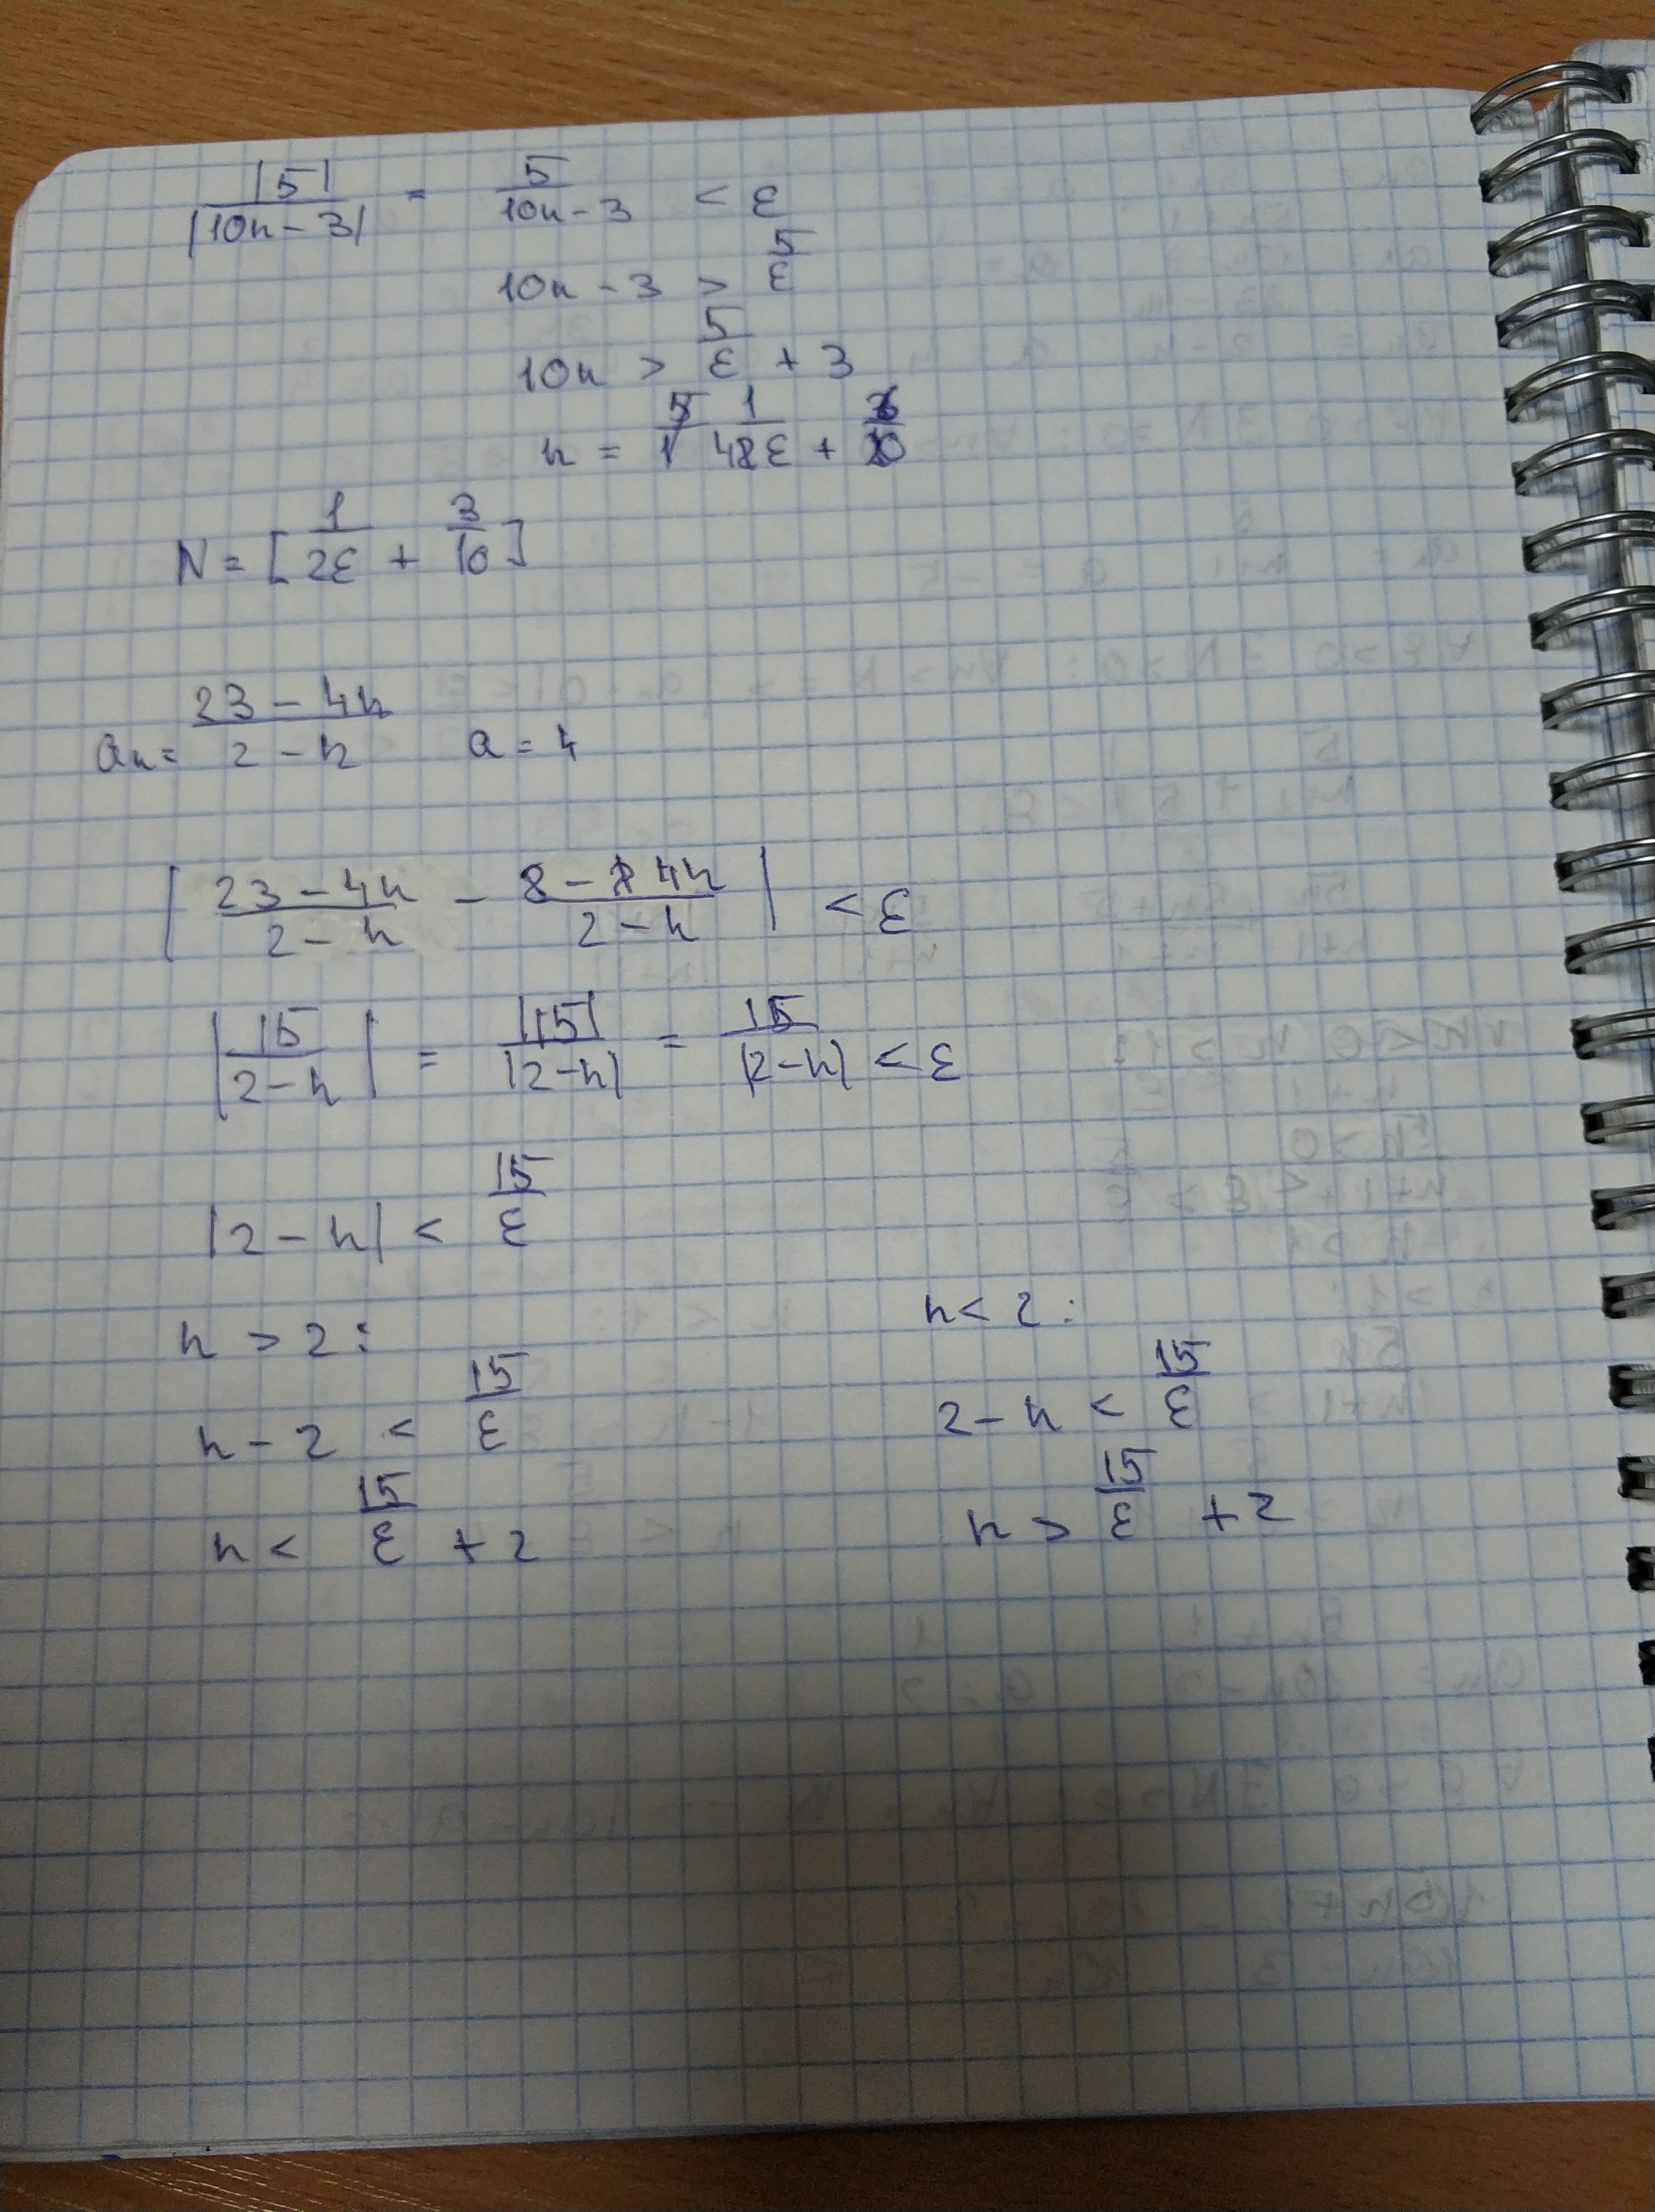 |5| / |10n - 3| = 5 / 10n - 3 < ε
10n - 3 > 5/ε
10n > 5/ε + 3
n = 1/2ε +
N = [1/2ε + 3/10]
aₙ = 23 - 4n / 2 - n a = 4
| 23 - 4n / 2 - n - 8 - 4n / 2 - n | < ε
| 15 / 2 - n | = |15| / |2 - n| = 15 / |2 - n| < ε
|2 - n| < 15/ε
n > 2: n < 2:
n - 2 < 15/ε 2 - n < 15/ε
n < 15/ε + 2 n > 15/ε + 2